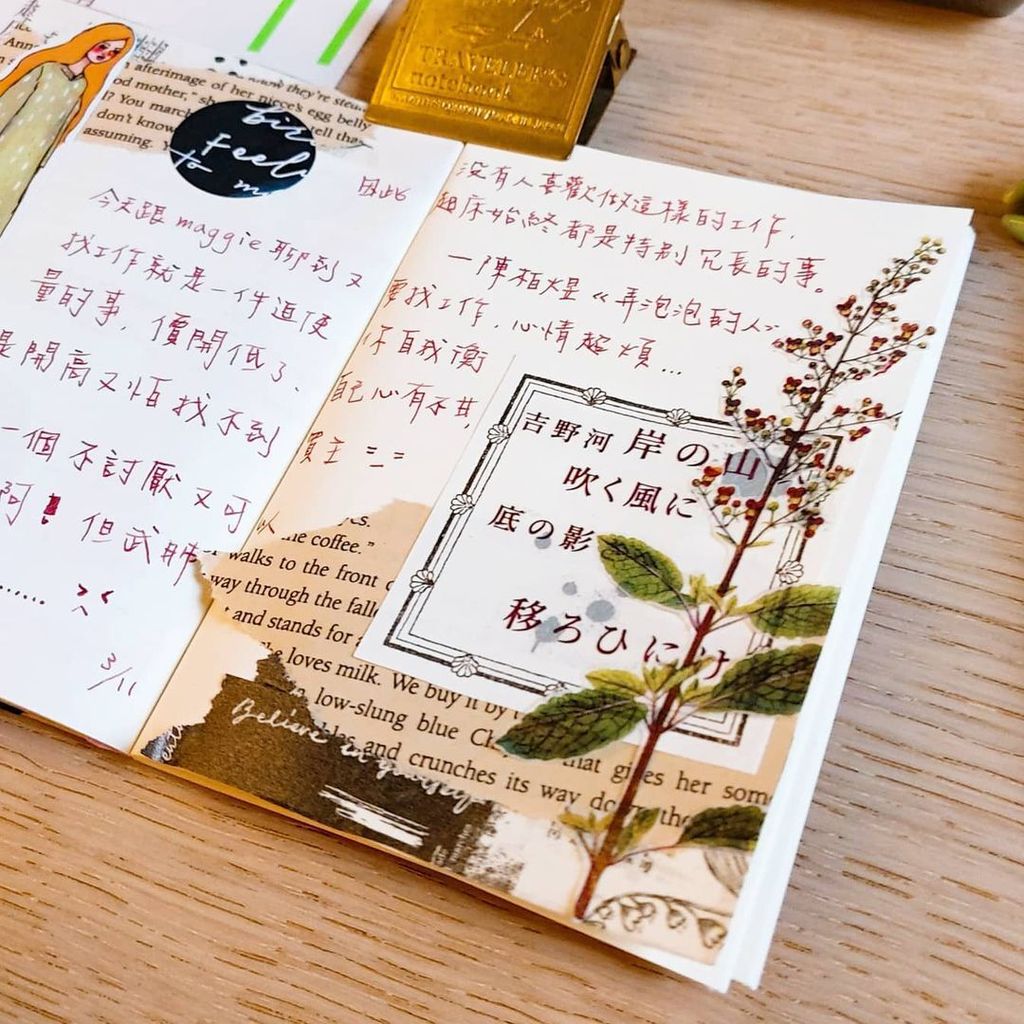 afterimage of her niece's egg belly
assuming.
Feel
TRAVELER'S
notebook
因此
今天跟 maggie 聊到又
找工作就是一件迫使
量的事，價開低了、
是開高又怕找不到
一個不討厭又可以
阿！但武肺
......
3/11
沒有人喜歡做這樣的工作，
起床始終都是特別冗長的事。
—陳栢煜《弄泡泡的人》
要找工作，心情超煩...
你自我衡
配心有不甘，
買主 = =
吉野河岸の山
吹く風に
底の影
移ろひにけ
the coffee."
walks to the front
way through the
and stands for
loves milk. We buy it by
low-slung blue
and crunches its way
that gives her
Believe in yourself